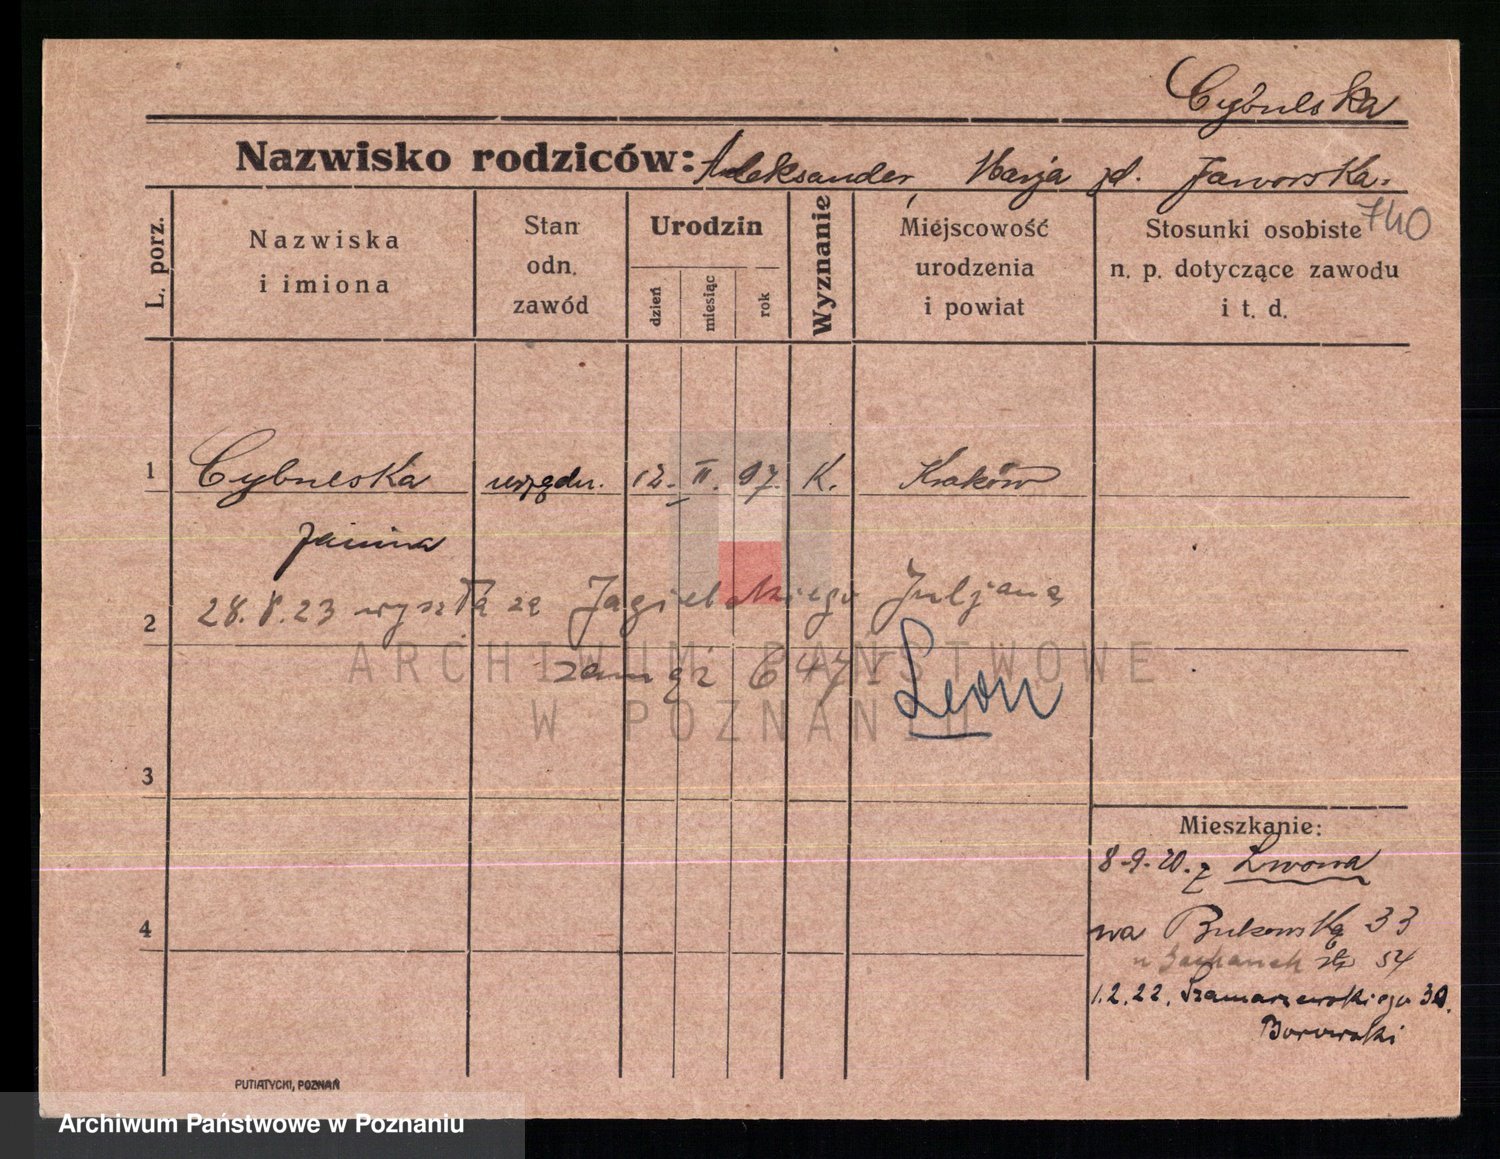 Cybulska
Nazwisko rodziców: Aleksander, Marja zd. Jaworska.
740
L. porz.
Nazwiska
i imiona
Stan
odn.
zawód
Urodzin
dzień
miesiąc
rok
Wyznanie
Miejscowość
urodzenia
i powiat
Stosunki osobiste
n. p. dotyczące zawodu
i t. d.
1 Cybulska urzędn. 12. II. 97. K. Kraków
Janina
2 28. 8. 23 wyszła za Jagielskiego Juljana
zamąż
Leon
ARCHIWUM PAŃSTWOWE
W POZNANIU
3
Mieszkanie:
8-9-20. z Lwowa
4
na Bukowską 33
54
1.2.22. Szamarzewskiego 30.
Borowski
PUTIATYCKI, POZNAŃ
Archiwum Państwowe w Poznaniu